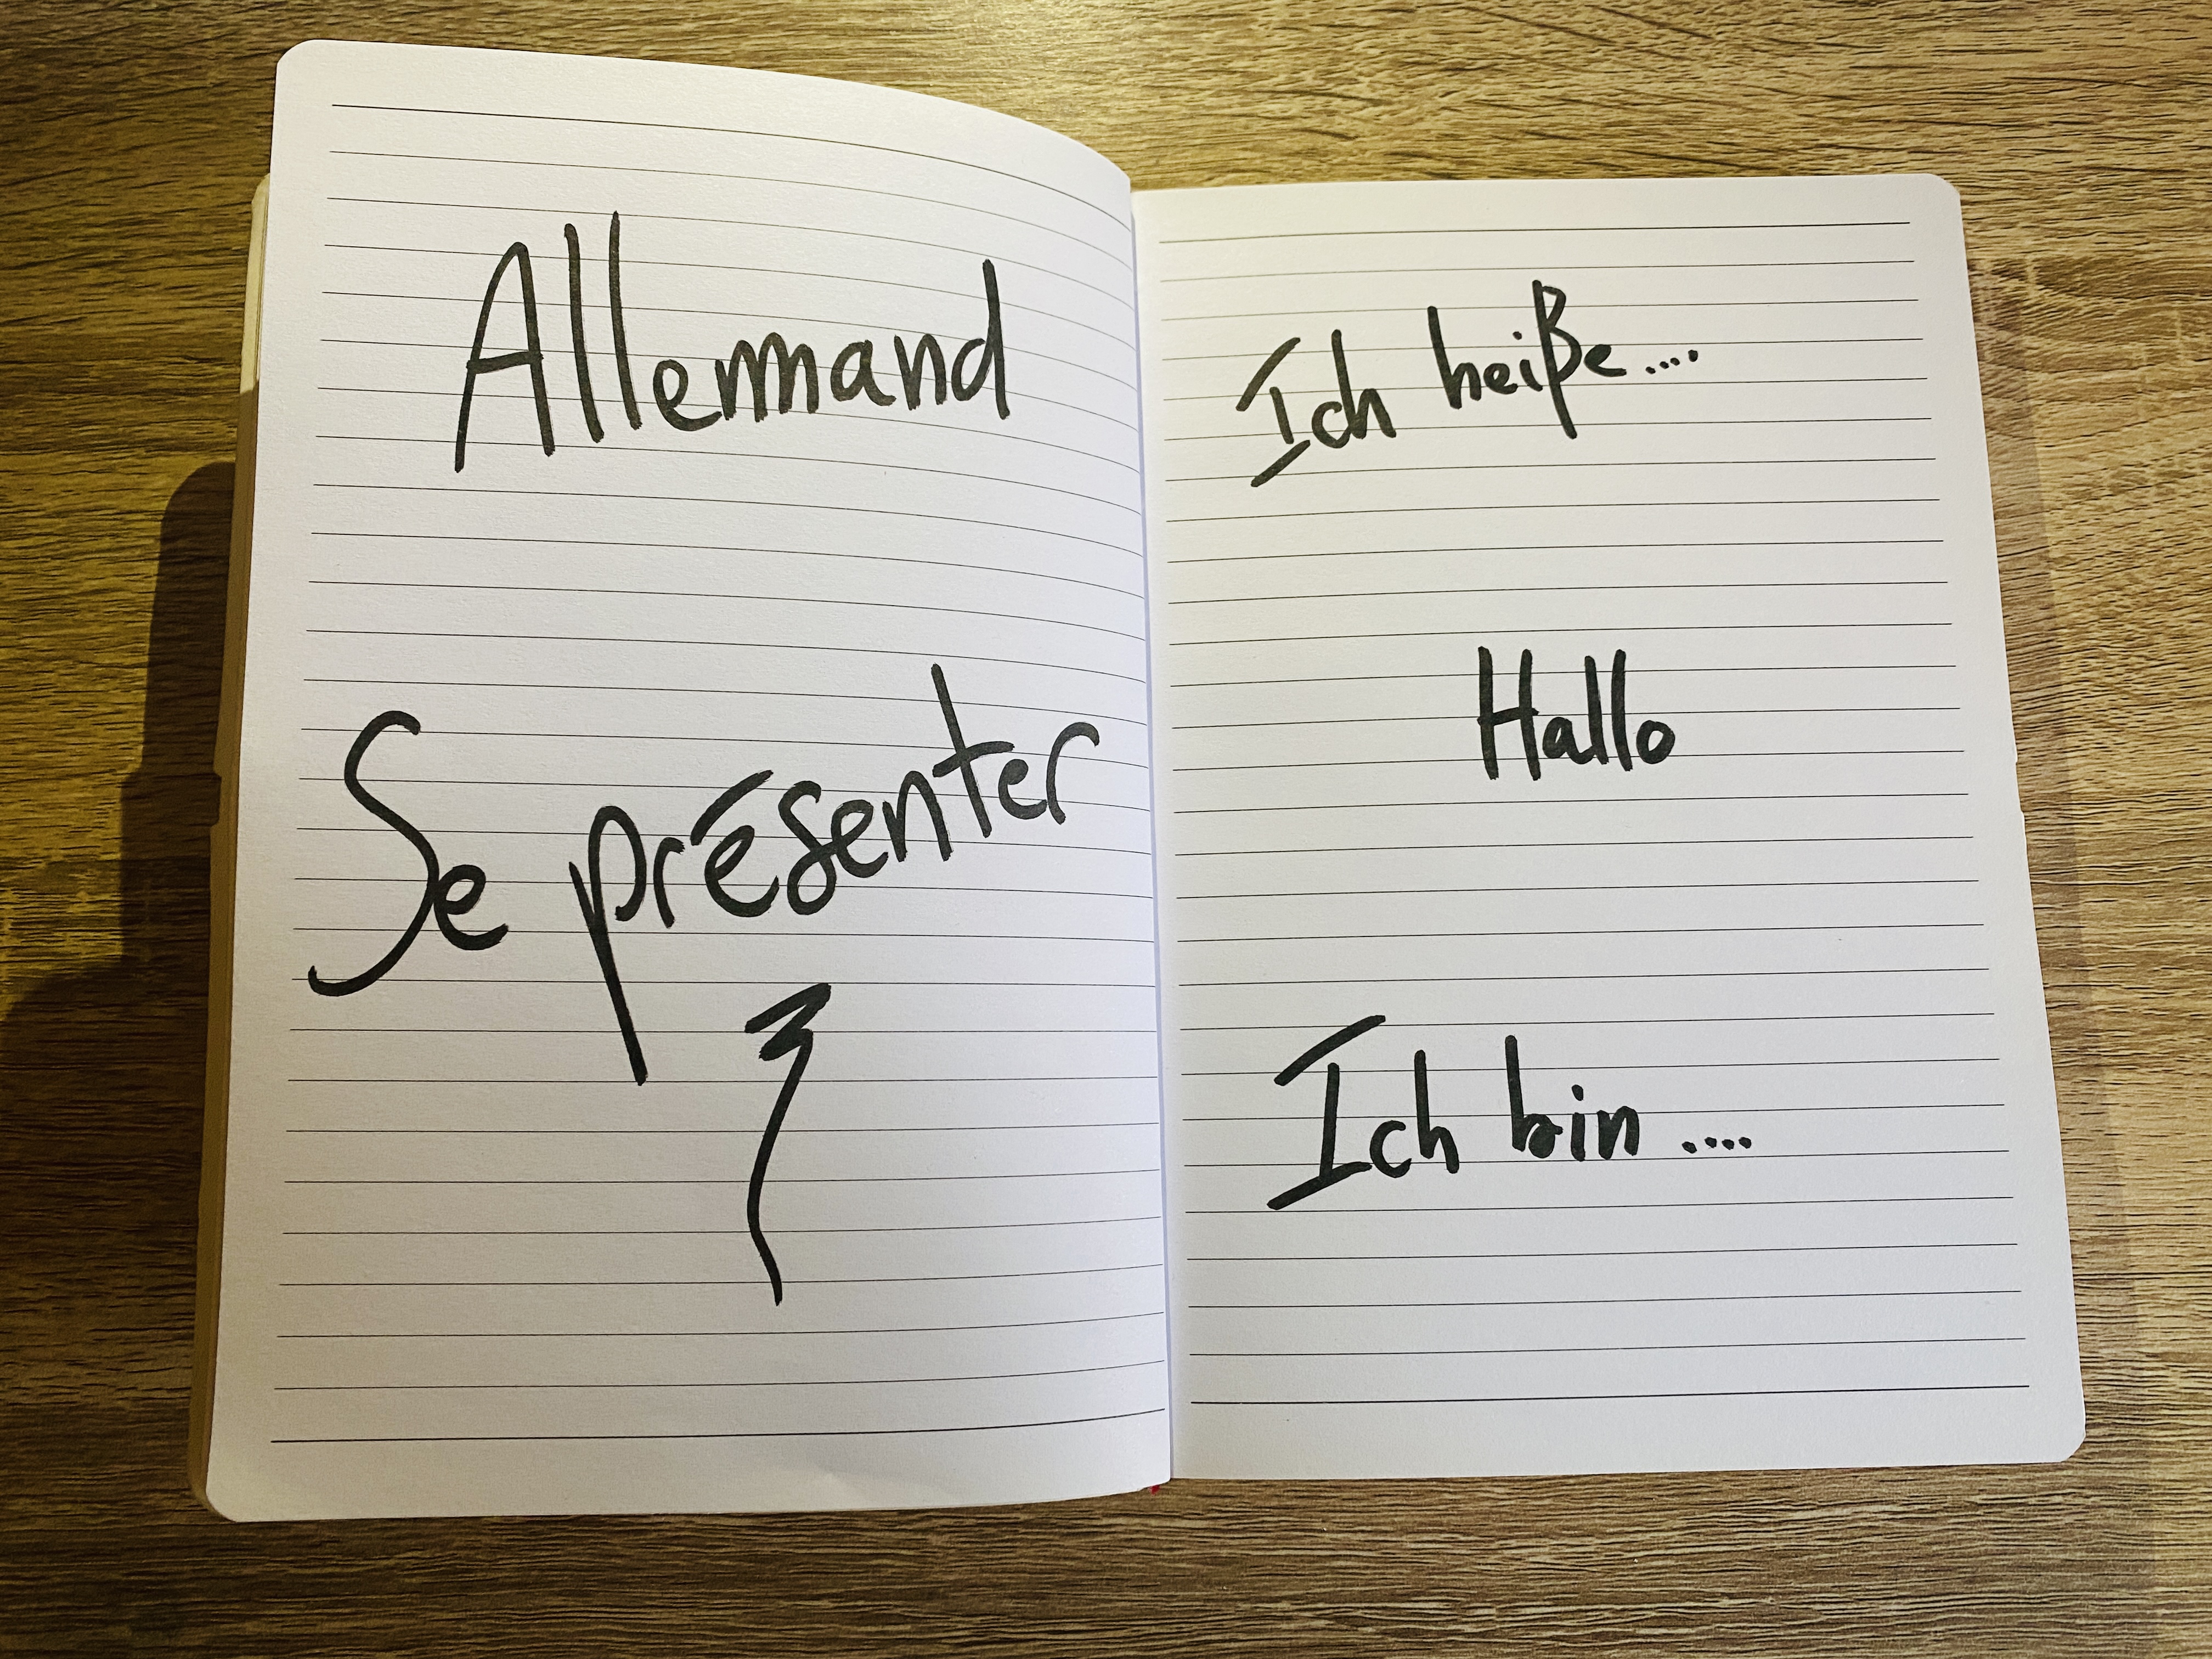 Allemand
Se présenter
Ich heiße....
Hallo
Ich bin ....